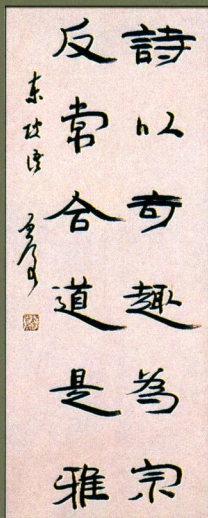 詩以奇趣為宗
反常合道是雅
東坡語